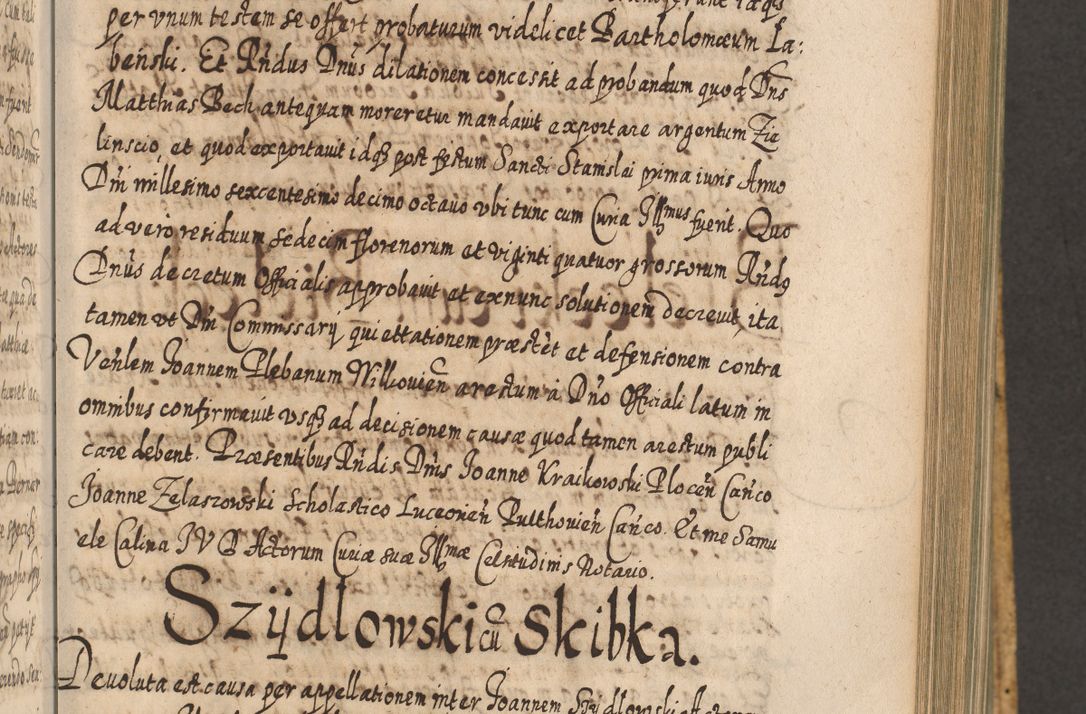 per vnum testem se offert probaturum videlicet Bartholomæum La:
beński. Et Rndus Dnus dilationem concessit ad probandum quod Dns
Matthias Bech antequam moreretur mandauit exportare argentum Zie
linscio, et quod exportauit idq3 post festum Sancti Stanislai prima iuris Anno
Dni millesimo sexcentesimo decimo octauo vbi tunc cum Curia Illmus fuerit. Quo
ad vero residuum sedecim florenorum et viginti quatuor grossorum Rnds
Dnus decretum Officialis approbauit et exnunc solutionem decreuit, ita
tamen vt Dni Commissarij quiettationem præstet et defensionem contra
Venlem Joannem Plebanum Wilkouien arestum à Dno Officiali latum in
omnibus confirmauit vsq3 ad decisionem causæ quod tamen arestum publi
care debent. Præsentibus Rndis Dnis Joanne Kraikowski Plocen Canco
Joanne Zelaszowski Scholastico Luceonen Pulthouien Canco. Et me Samu
ele Calina IVD Actorum Curiæ suæ Illmæ Celsitudinis Notario.
Szÿdlowski cu Skibka.
Deuoluta est causa per appellationem inter Joannem Szÿdlowski Actorem